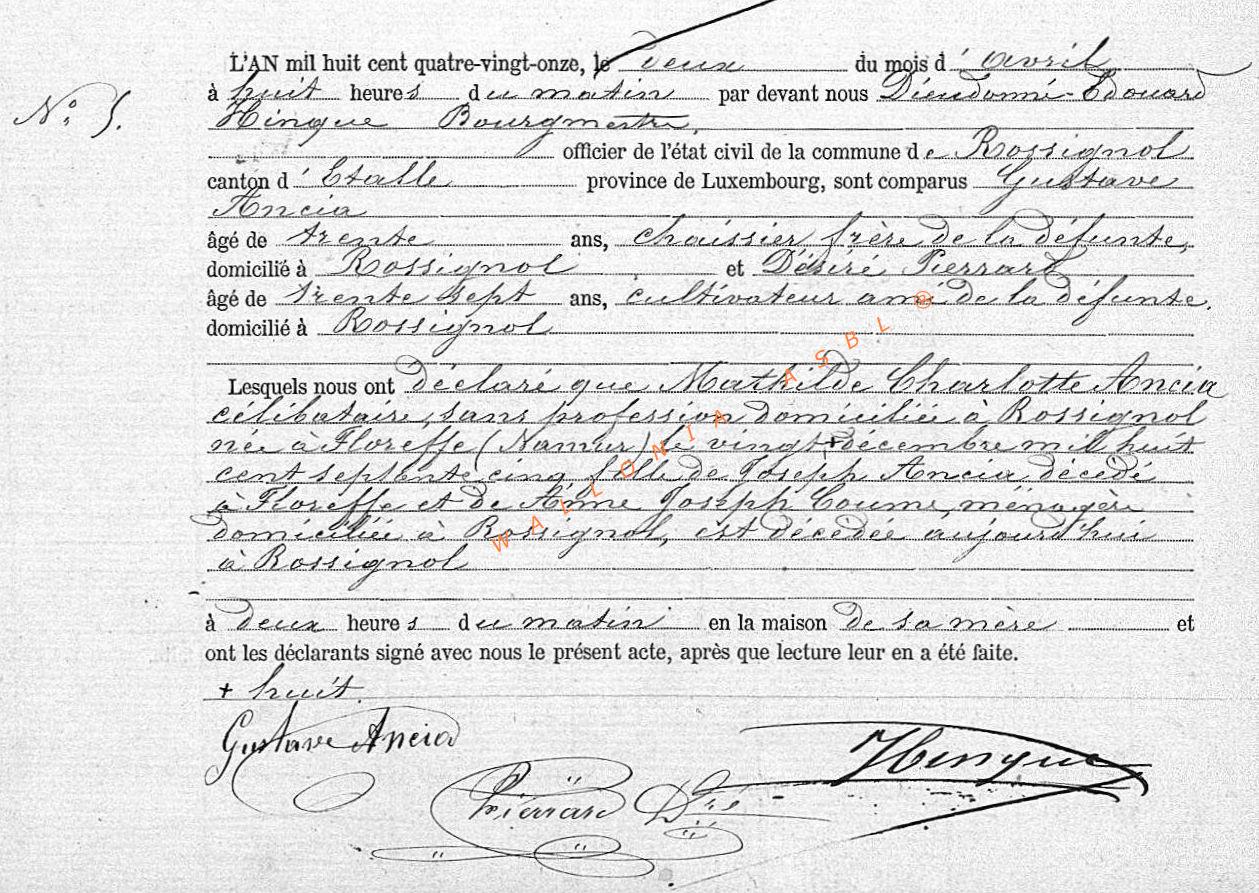 L'AN mil huit cent quatre-vingt-onze, le deux du mois d'avril
N° 5.
à huit heures du matin par devant nous Dieudonné-Edouard
Hinque Bourgmestre,
officier de l'état civil de la commune de Rossignol
canton d'Etalle province de Luxembourg, sont comparus Gustave
Ancia
âgé de trente ans, chaissier frère de la défunte,
domicilié à Rossignol et Désiré Pierrard
âgé de trente sept ans, cultivateur ami de la défunte.
domicilié à Rossignol
Lesquels nous ont déclaré que Mathilde Charlotte Ancia
célibataire, sans profession domiciliée à Rossignol
née à Floreffe (Namur) le vingt + décembre mil huit
cent septante cinq, fille de Joseph Ancia décédé
à Floreffe et de Anne Joseph Coume, ménagère
domiciliée à Rossignol, est décédée aujourd'hui
à Rossignol
à deux heures du matin en la maison de sa mère et
ont les déclarants signé avec nous le présent acte, après que lecture leur en a été faite.
+ huit.
Gustave Ancia
Hinque
Pierrard Dré
WALLONIA ASBL ®